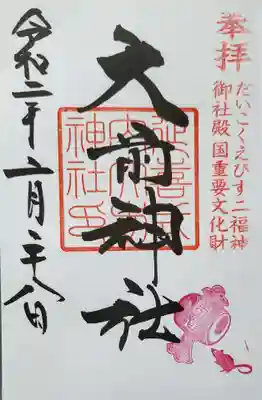 奉拝
だいこくえびす二福神
御社殿国重要文化財
大前神社
延喜式
内大前
神社印
令和二年二月二十八日